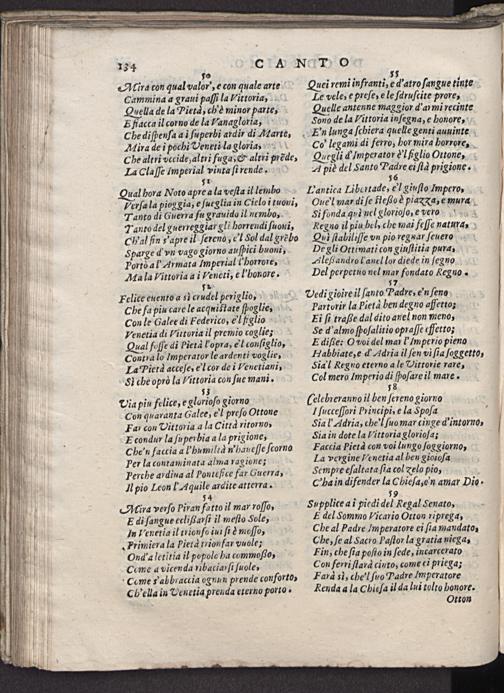 134 CANTO
50
Mira con qual valor', e con quale arte
Cammina a graui passi la Vittoria,
Quella de la Pietà, ch'è minor parte,
E fiacca il corno de la Vanagloria,
Che dispensa a i superbi ardir di Marte,
Mira de i pochi Veneti la gloria,
Che altri vccide, altri fuga, & altri prède,
La Classe Imperial vinta si rende.
51
Qual hora Noto apre a la vesta il lembo
Versa la pioggia, e sueglia in Cielo i tuoni,
Tanto di Guerra fu grauido il nembo,
Tanto del guerreggiar gli horrendi suoni,
Ch'al fin s'apre il sereno, e'l Sol dal grèbo
Sparge d'vn vago giorno auspici buoni,
Portò a l'Armata Imperial l'horrore,
Ma la Vittoria a i Veneti, e l'honore.
52
Felice euento a sì crudel periglio,
Che fa piu care le acquistate spoglie,
Con le Galee di Federico, e'l figlio
Venetia di Vittoria il premio coglie;
Qual fosse di Pietà l'opra, e'l consiglio,
Contra lo Imperator le ardenti voglie,
La Pietà accese, e'l cor de i Venetiani,
Sì che oprò la Vittoria con sue mani.
53
Via piu felice, e glorioso giorno
Con quaranta Galee, e'l preso Ottone
Far con Vittoria a la Città ritorno,
E condur la superbia a la prigione,
Che'n faccia a l'humiltà n'hauesse scorno
Per la contaminata alma ragione;
Perche ardina al Pontefice far Guerra,
Il pio Leon l'Aquile ardite atterra.
54
Mira verso Piran fatto il mar rosso,
E di sangue eclissarsi il mesto Sole,
In Venetia il trionfo iui si è mosso,
Primiera la Pietà trionfar vuole;
Ond'a letitia il popolo ha commosso,
Come a vicenda ribaciarsi suole,
Come s'abbraccia ognun prende conforto,
Ch'ella in Venetia prenda eterno porto.
55
Quei remi infranti, e d'atro sangue tinte
Le vele, e prese, e le sdruscite prore,
Quelle antenne maggior d'armi recinte
Sono de la Vittoria insegna, e honore,
E'n lunga schiera quelle genti auuinte
Co' legami di ferro, hor mira horrore,
Quegli d'Imperator è'l figlio Ottone,
A piè del Santo Padre ei sià prigione.
56
L'antica Libertade, e'l giusto Impero,
Oue'l mar di se stesso è piazza, e mura
Si fonda quì nel glorioso, e vero
Regno il piu bel, che mai fesse natura,
Quì stabilisse vn pio regnar seuero
De gli Ottimati con giustitia pura,
Alessandro l'anel lor diede in segno
Del perpetuo nel mar fondato Regno.
57
Vedi gioire il santo Padre, e'n seno
Partorir la Pietà ben degno affetto;
Ei si trasse dal dito anel non meno,
Se d'almo sposalitio oprasse effetto;
E disse: O voi del mar l'Imperio pieno
Habbiate, e d'Adria il sen vi sia soggetto,
Sia'l Regno eterno a le Vittorie rare,
Col mero Imperio di sposare il mare.
58
Celebreranno il ben sereno giorno
I successori Principi, e la Sposa
Sia l'Adria, che'l suo mar cinge d'intorno,
Sia in dote la Vittoria gloriosa;
Faccia Pietà con voi lungo soggiorno,
La vergine Venetia al ben gioiosa
Sempre esaltata sia col zelo pio,
C'ha in difender la Chiesa, ò'n amar Dio.
59
Supplice a i piedi del Regal Senato,
E del Sommo Vicario Otton ripregà,
Che al Padre Imperatore ei sia mandato,
Che, se al Sacro Pastor la gratia niega,
Fin, che sia posto in sede, incarcerato
Con ferri starà cinto, come ei priega;
Farà sì, che'l suo Padre Imperatore
Renda a la Chiesa il da lui tolto honore.
Otton